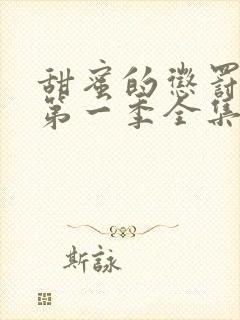 甜蜜的懲罰
第一季全集
斯詠